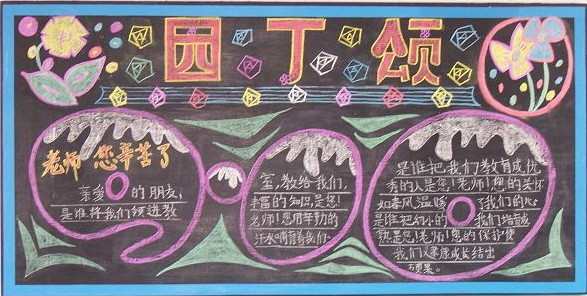 园丁颂
老师 您辛苦了
亲爱的朋友,
是谁将我们领进教
室,教给我们,
丰富的知识,是您!
老师!您用辛勤的
汗水哺育着我们。
是谁把我们教育成优
秀的人是您!老师!您的关怀
如春风,温暖了我们的心
是谁把幼小的我们
是您!老师!您的保护使
我们健康成长结出
硕果。